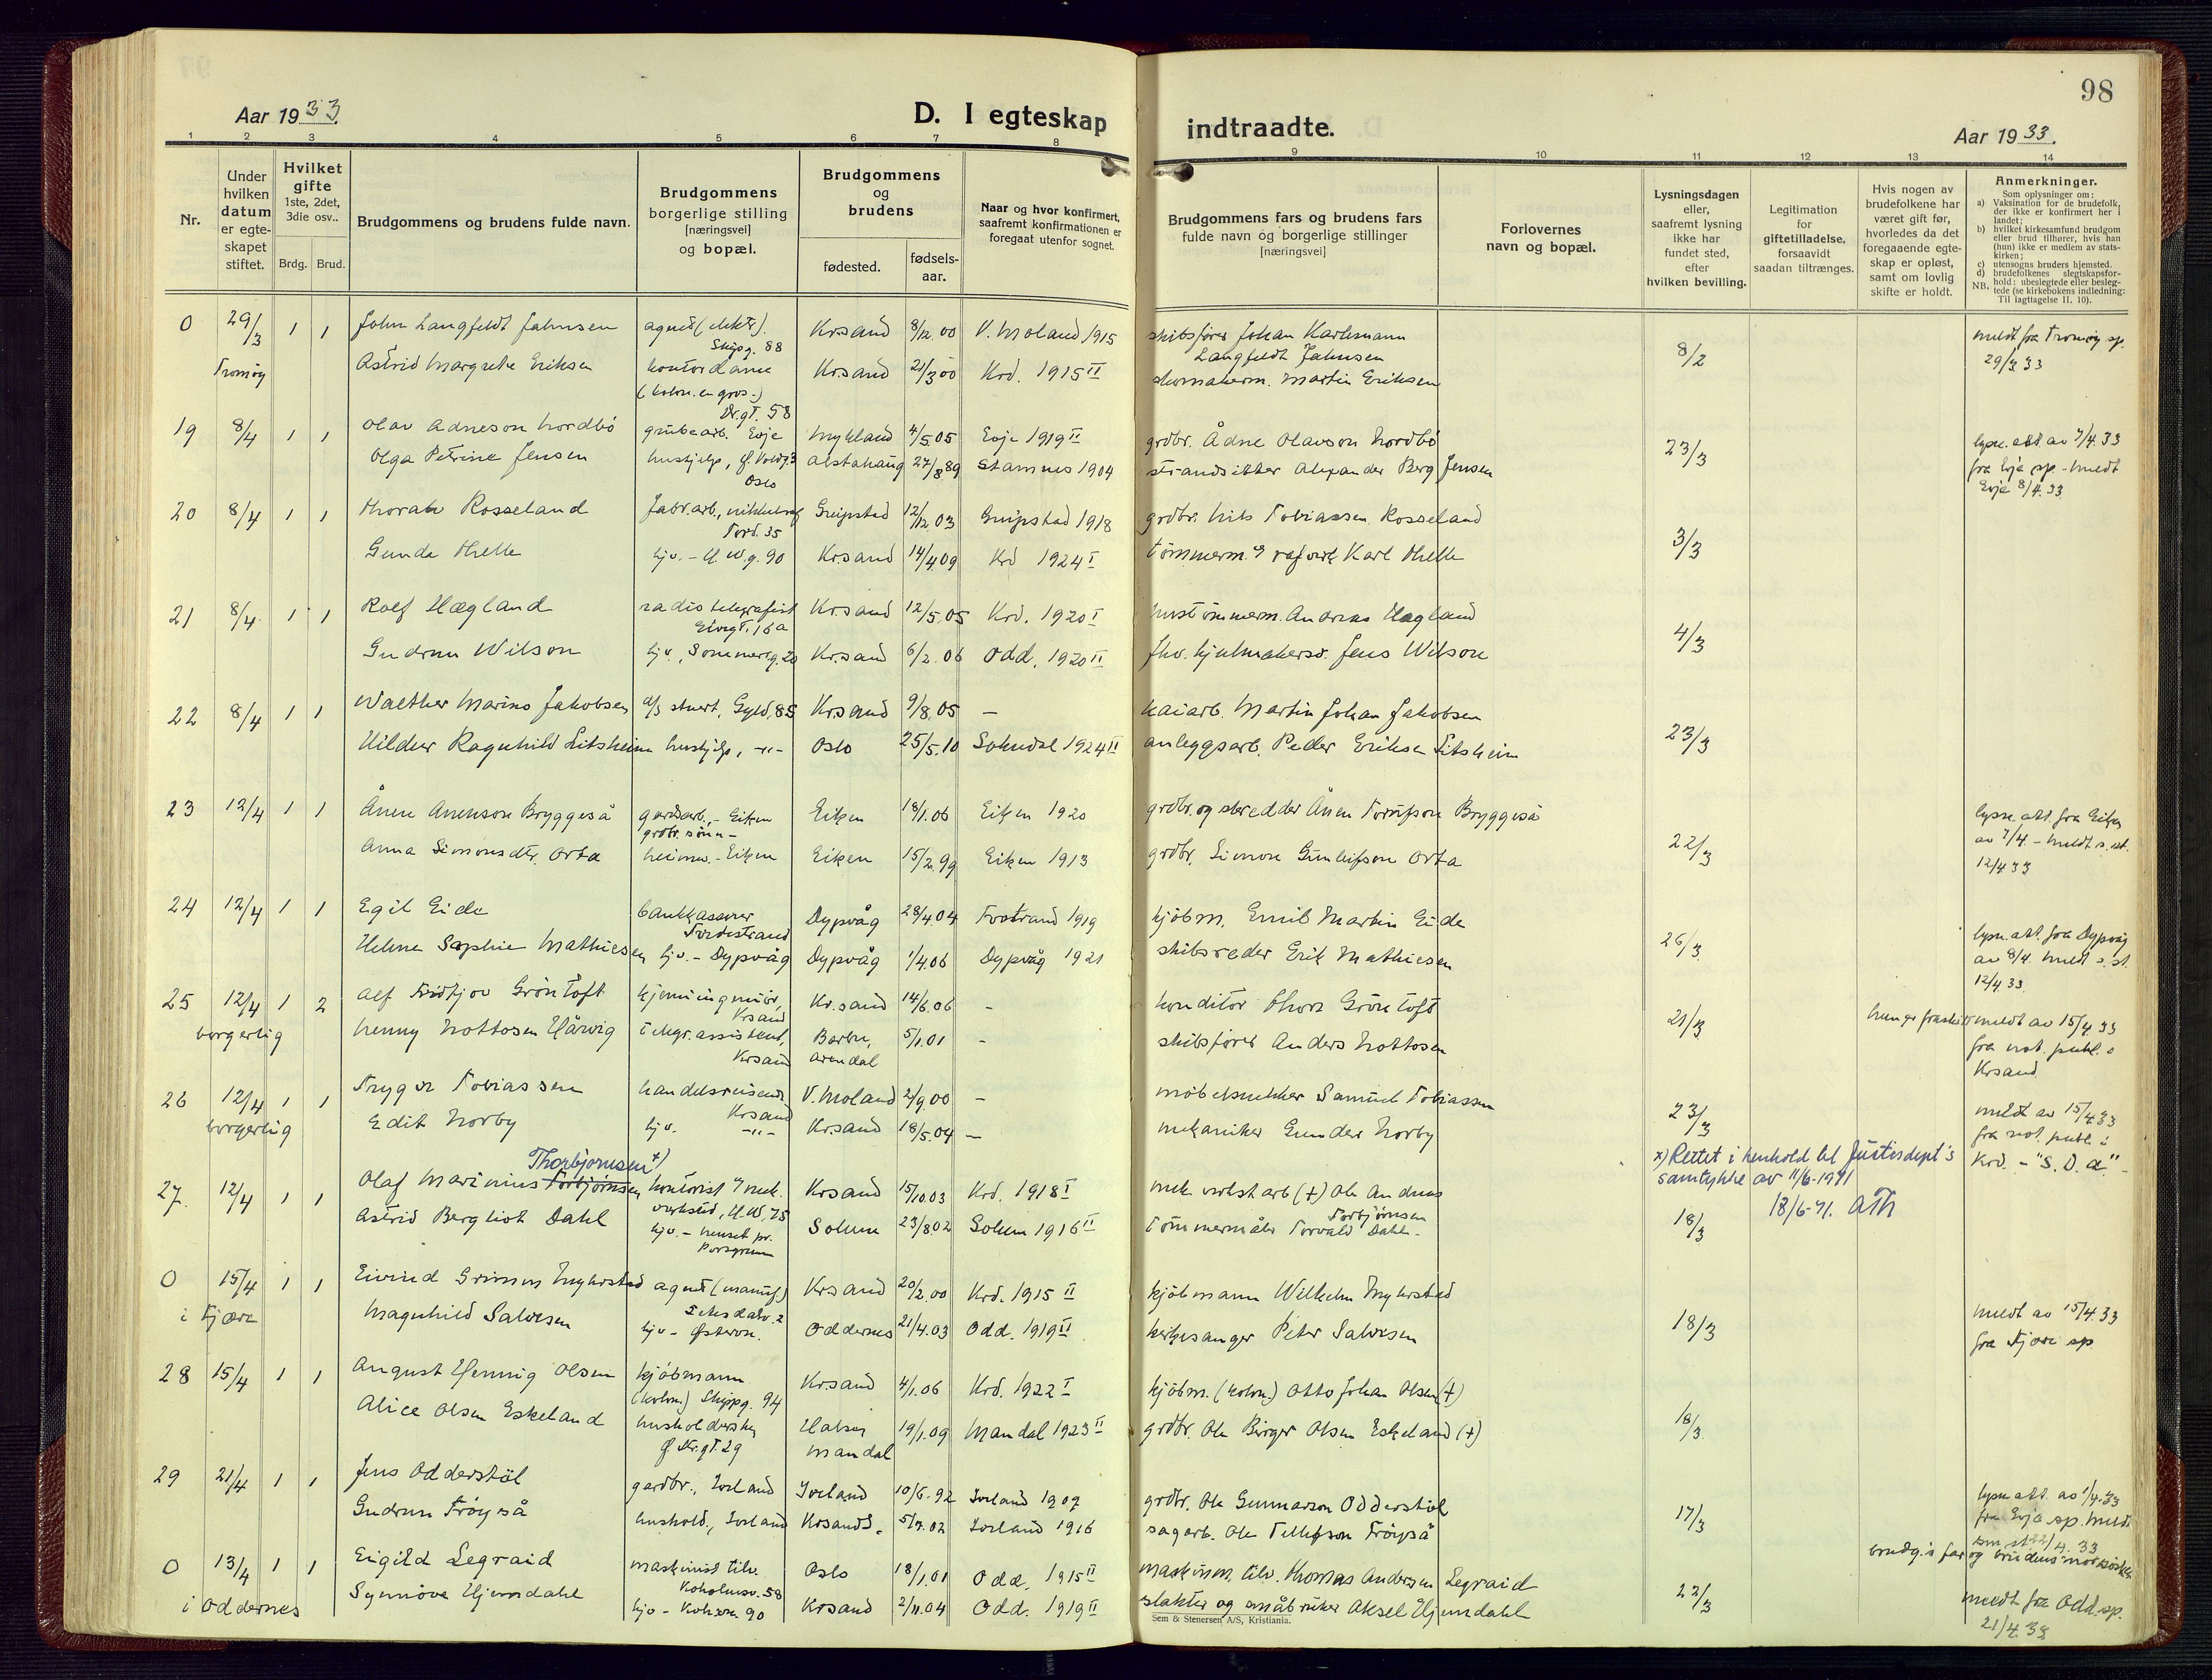 98
Aar 1933.
D. I egteskap indtraadte.
Aar 1933.
1 2 3 4 5 6 7 8 9 10 11 12 13 14
Nr.
Under hvilken datum er egte- skapet stiftet.
Hvilket gifte 1ste, 2det, 3die osv..
Brdg. Brud.
Brudgommens og brudens fulde navn.
Brudgommens borgerlige stilling [næringsvei] og bopæl.
Brudgommens og brudens
fødested.
fødsels- aar.
Naar og hvor konfirmert, saafremt konfirmationen er foregaat utenfor sognet.
Brudgommens fars og brudens fars fulde navn og borgerlige stillinger [næringsvei]
Forlovernes navn og bopæl.
Lysningsdagen eller, saafremt lysning ikke har fundet sted, efter hvilken bevilling.
Legitimation for giftetilladelse, forsaavidt saadan tiltrænges.
Hvis nogen av brudefolkene har været gift før, hvorledes da det foregaaende egte- skap er opløst, samt om lovlig skifte er holdt.
Anmerkninger.
Som oplysninger om:
a) Vaksination for de brudefolk, der ikke er konfirmert her i landet;
b) hvilket kirkesamfund brudgom eller brud tilhører, hvis han (hun) ikke er medlem av stats- kirken;
c) utensogns bruders hjemsted.
d) brudefolkenes slegtskapsfor- hold: ubeslegtede eller besleg- tede (se kirkebokens indledning:
NB. Til iagttagelse II, 10).
0 29/3 1 1 John Langfeldt Jahnsen agent (elektr). Skipg. 88 Kr.sand 8/12.00 V. Moland 1915 skibsfører Johan Karlsmann Langfeldt Jahnsen 8/2 meldt fra Tromøy sp. 29/3 33
Tromøy Astrid Margrethe Eriksen kontordame (kolon. en gros.) Dr.gt. 58 Kr.sand 21/3 00 Krd. 1915 II skomakerm. Martin Eriksen
19 8/4 1 1 Olav Adneson Nordbö grubearb. Evje Mykland 4/5.05 Evje 1919 II grdbr. Ådne Olavson Nordbö 23/3 lysn. att av 7/4.33 fra Evje sp. - meldt Evje 8/4.33
Olga Petrine Jensen hushjelp, Oslo Alstahaug 27/8 89 Stamnes 1904 strandsitter Alexander Berg Jensen
20 8/4 1 1 Thoralv Rosseland fabr.arb., Tord. 35 Greipstad 12/12 03 Greipstad 1918 grdbr. Nils Tobiassen Rosseland 3/3
Gunda Helle hjv. - H.W.g. 90 Kr.sand 14/4.09 Krd 1924 I tömmerm. Karl Helle
21 8/4 1 1 Rolf Hægland radiotelegrafist Elvegt. 16a Kr.sand 12/5.05 Krd. 1920 I hustömmerm. Andreas Hægland 4/3
Gudrun Wilson hjv., Kr.sand 6/2.06 Odd. 1920 II fhv. hjulmakersv. Jens Wilson
22 8/4 1 1 Walther Marino Jakobsen stuert, Gyld. 85 Kr.sand 9/8.05 - kaiarb. Martin Johan Jakobsen 23/3
Hildur Ragnhild Litsheim hushjelp, -"- Oslo 25/5.10 Sokndal 1924 II anleggsarb. Peder Eriksen Litsheim
23 12/4 1 1 Ånen Anenson Bryggeså gardsarb., - Eiken grdbr. sönn - Eiken 18/1.06 Eiken 1920 grdbr. og skredder Ånen Bryggeså 22/3 lysn. att. fra Eiken av 7/4. - meldt s. st. 12/4 33
Anna Simonsdtr. Orta heimev. - Eiken Eiken 15/2.99 Eiken 1913 grdbr. Simon Gunleifson Orta
24 12/4 1 1 Egil Eide bankkasserer Tvedestrand Dypvåg 28/4.04 Tvetrand 1919 kjöbm. Emil Martin Eide 26/3 lysn. att. fra Dypvåg av 8/4. meldt s. st. 12/4.33.
Helene Sophie Mathiesen hjv. - Dypvåg Dypvåg 1/4.06 Dypvåg 1921 skibsreder Erik Mathiesen
25 12/4 1 2 Alf Fridtjov Gröntoft kjemiingeniör, Krsand Kr.sand 14/6.06 - konditor Thorz Gröntoft 21/3 hun er fraskilt meldt av 15/4 33 fra not. publ. i Krsand
borgerlig Henny Nottosen Hårvig telegr. assistent, Krsand Barbu, Arendal 5/1.01 - skibsfører Anders Nottosen
26 12/4 1 1 Trygve Tobiassen handelsreisende Krsand V. Moland 2/9.00 - möbelsnekker Samuel Tobiassen 23/3 meldt av 15/4.33 fra not. publ. i Krd. - "S. D. a." -
borgerlig Edit Norby hjv. -"- Krsand 18/5.04 - mekaniker Gunder Norby
x) Rettet i henhold til Justisdept's samtykke av 11/6-1971 18/6-71. ATh
27. 12/4 1 1 Olaf Marinius Torbjörnsen Thorbjørnsen x) kontorist mek. verksted, H.W. 75 Krsand 15/10.03 Krd. 1918 I mek. verkst arb (+) Ole Andreas Torbjörnsen 18/3
Astrid Bergliot Dahl hjv. - pr. Porsgrunn Solum 23/8.02 Solum 1916 II Tömmermåler Torvald Dahl.
0 15/4 1 1 Eivind Grimm Myhrstad agent (manuf.) Krsand 20/2.00 Krd. 1915 II kjöbmann Wilhelm Myhrstad 18/3 meldt av 15/4.33 fra Fjære sp.
i Fjære Magnhild Salvesen hjv - Østervn. Oddernes 21/4.03 Odd. 1919 II kirkesanger Peter Salvesen
28 15/4 1 1 August Hennig Olsen kjöbmann (kolon.) Skippg. 94 Krsand 4/1.06 Krd. 1922 I kjöbm. (kolon.) Otto Johan Olsen (+) 18/3
Alice Olsen Eskeland husholderske gt. 29 Halse Mandal 19/1.09 Mandal 1923 II grdbr. Ole Birger Olsen Eskeland (+)
29 21/4 1 1 Jens Odderstöl gardbr., Iveland Iveland 10/6.92 Iveland 1907 grdbr. Ole Gunnarson Odderstöl 17/3 lysn. att. av 1/4.33 fra Evje sp. meldt sm. st 22/4.33
Gudrun Fröyså hushold., Iveland Krsands. 5/7.02 Iveland 1916 sagarb. Ole Tellefson Fröyså
0 13/4 1 1 Eigild Legraid maskinist tilv. Koholmsv. 58 Oslo 18/1.01 Odd. 1915 II maskinm. tilv. Thomas Andersen Legraid 23/3 brudg.s far og brudens mor søsken
i Oddernes Synnöve Hjemdahl hjv - 90 Krsand 2/11.04 Odd. 1919 II slakter og småbruker Aksel Hjemdahl meldt fra Odd. sp. 21/4.33
Sem & Stenersen A/S, Kristiania.